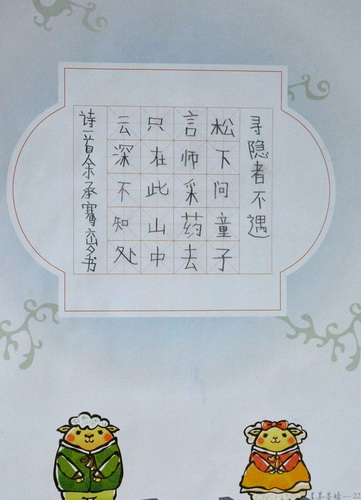 寻隐者不遇
松下问童子
言师采药去
只在此山中
云深不知处
诗一首余承骞书